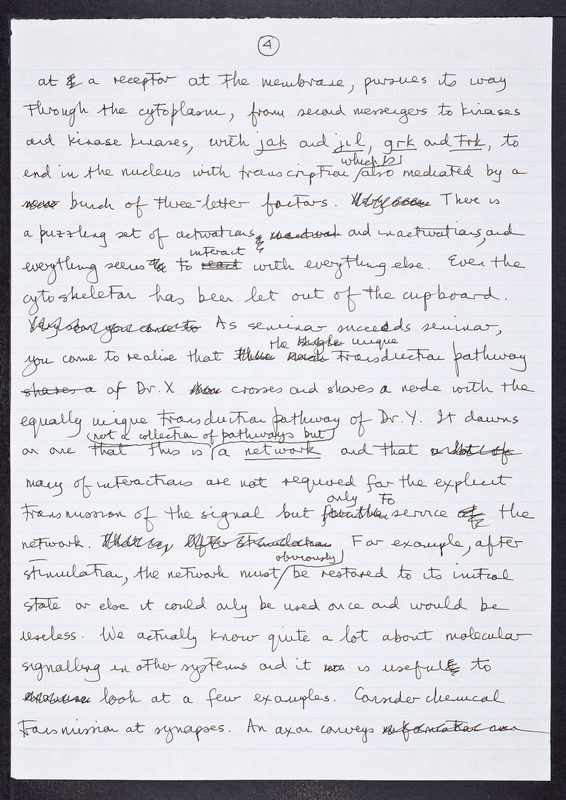 4
at a receptor at the membrane, pursues its way
through the cytoplasm, from second messengers to kinases
and kinase kinases, with jak and jul, grk and trk, to
end in the nucleus with transcription which is also mediated by a
bunch of three-letter factors. There is
a puzzling set of activations and inactivations, and
everything seems to interact with everything else. Even the
cytoskeleton has been let out of the cupboard.
As seminar succeeds seminar,
you come to realise that the unique transduction pathway
of Dr. X crosses and shares a node with the
equally unique transduction pathway of Dr. Y. It dawns
on one that this is not a collection of pathways but a network and that
many of interactions are not required for the explicit
transmission of the signal but only to service the
network. For example, after
stimulation, the network must obviously be restored to its initial
state or else it could only be used once and would be
useless. We actually know quite a lot about molecular
signalling in other systems and it is useful to
look at a few examples. Consider chemical
transmission at synapses. An axon conveys